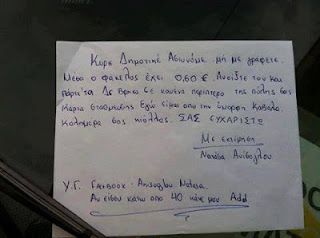 Κυριε Δημοτικέ Αστυνόμε. μή με γράψετε.
Μέσα ο φάκελος έχει 0,60 €. Ανοίξτε τον και
πάρτε τα. Δε βρήκα σε κανένα περίπτερο της πόλης σας
Κάρτα στάθμευσης. Εγώ είμαι από την όμορφη Καβάλα.
Καλημέρα σας πιόλλας. ΣΑΣ ΕΥΧΑΡΙΣΤΩ
Με εκτίμηση
Νατάσα
Υ.Γ. Facebook: Νατάσα.
Αν είσαι κάτω από 40 κάνε μου Add